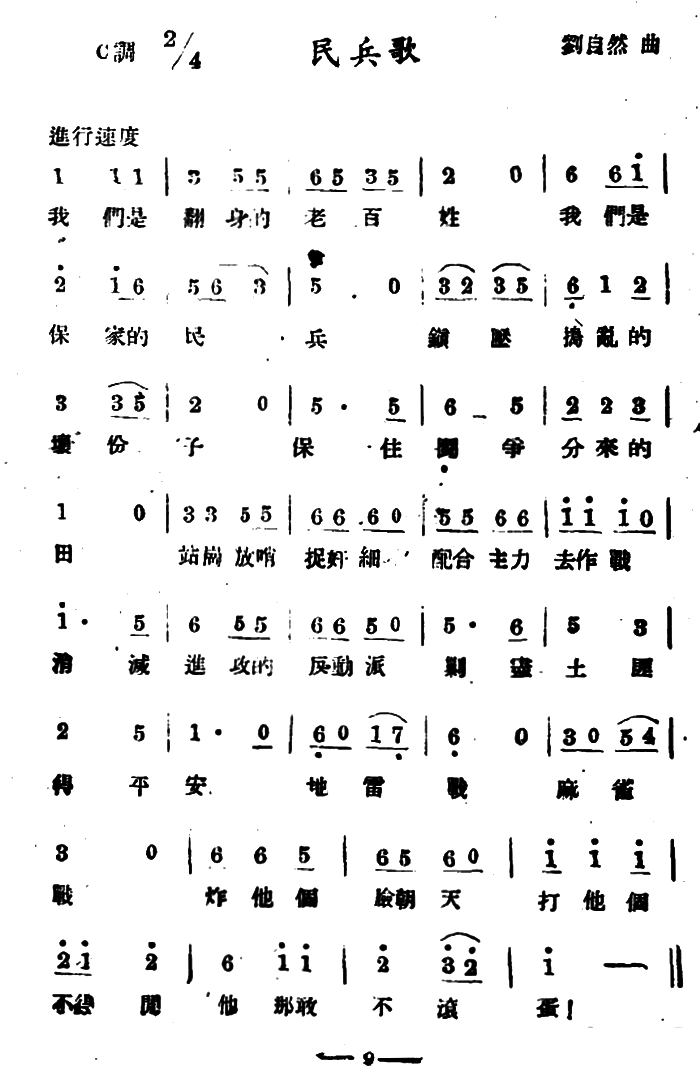 C調 2/4 民兵歌 劉自然 曲
進行速度
1 1 1 | 3 5 5 | 6 5 3 5 | 2 0 | 6 6 1
我們是翻身的老百姓 我們是
2 1 6 | 5 6 3 | 5 0 | 3 2 3 5 | 6 1 2
保家的民兵 鎮壓搗亂的
3 3 5 | 2 0 | 5 · 5 | 6 5 | 2 2 3
壞份子 保住鬪爭分來的
1 0 | 3 3 5 5 | 6 6 6 0 | 5 5 6 6 | 1 1 1 0
田 站崗放哨捉奸細 配合主力去作戰
1 · 5 | 6 5 5 | 6 6 5 0 | 5 · 6 | 5 3
消滅進攻的反動派 剿盡土匪
2 5 | 1 · 0 | 6 0 1 7 | 6 0 | 3 0 5 4
得平安 地雷戰 麻雀
3 0 | 6 6 5 | 6 5 6 0 | 1 1 1
戰 炸他個臉朝天 打他個
2 1 2 | 6 1 1 | 2 3 2 | 1 — ‖
不得閒 他那敢不滾蛋!
9